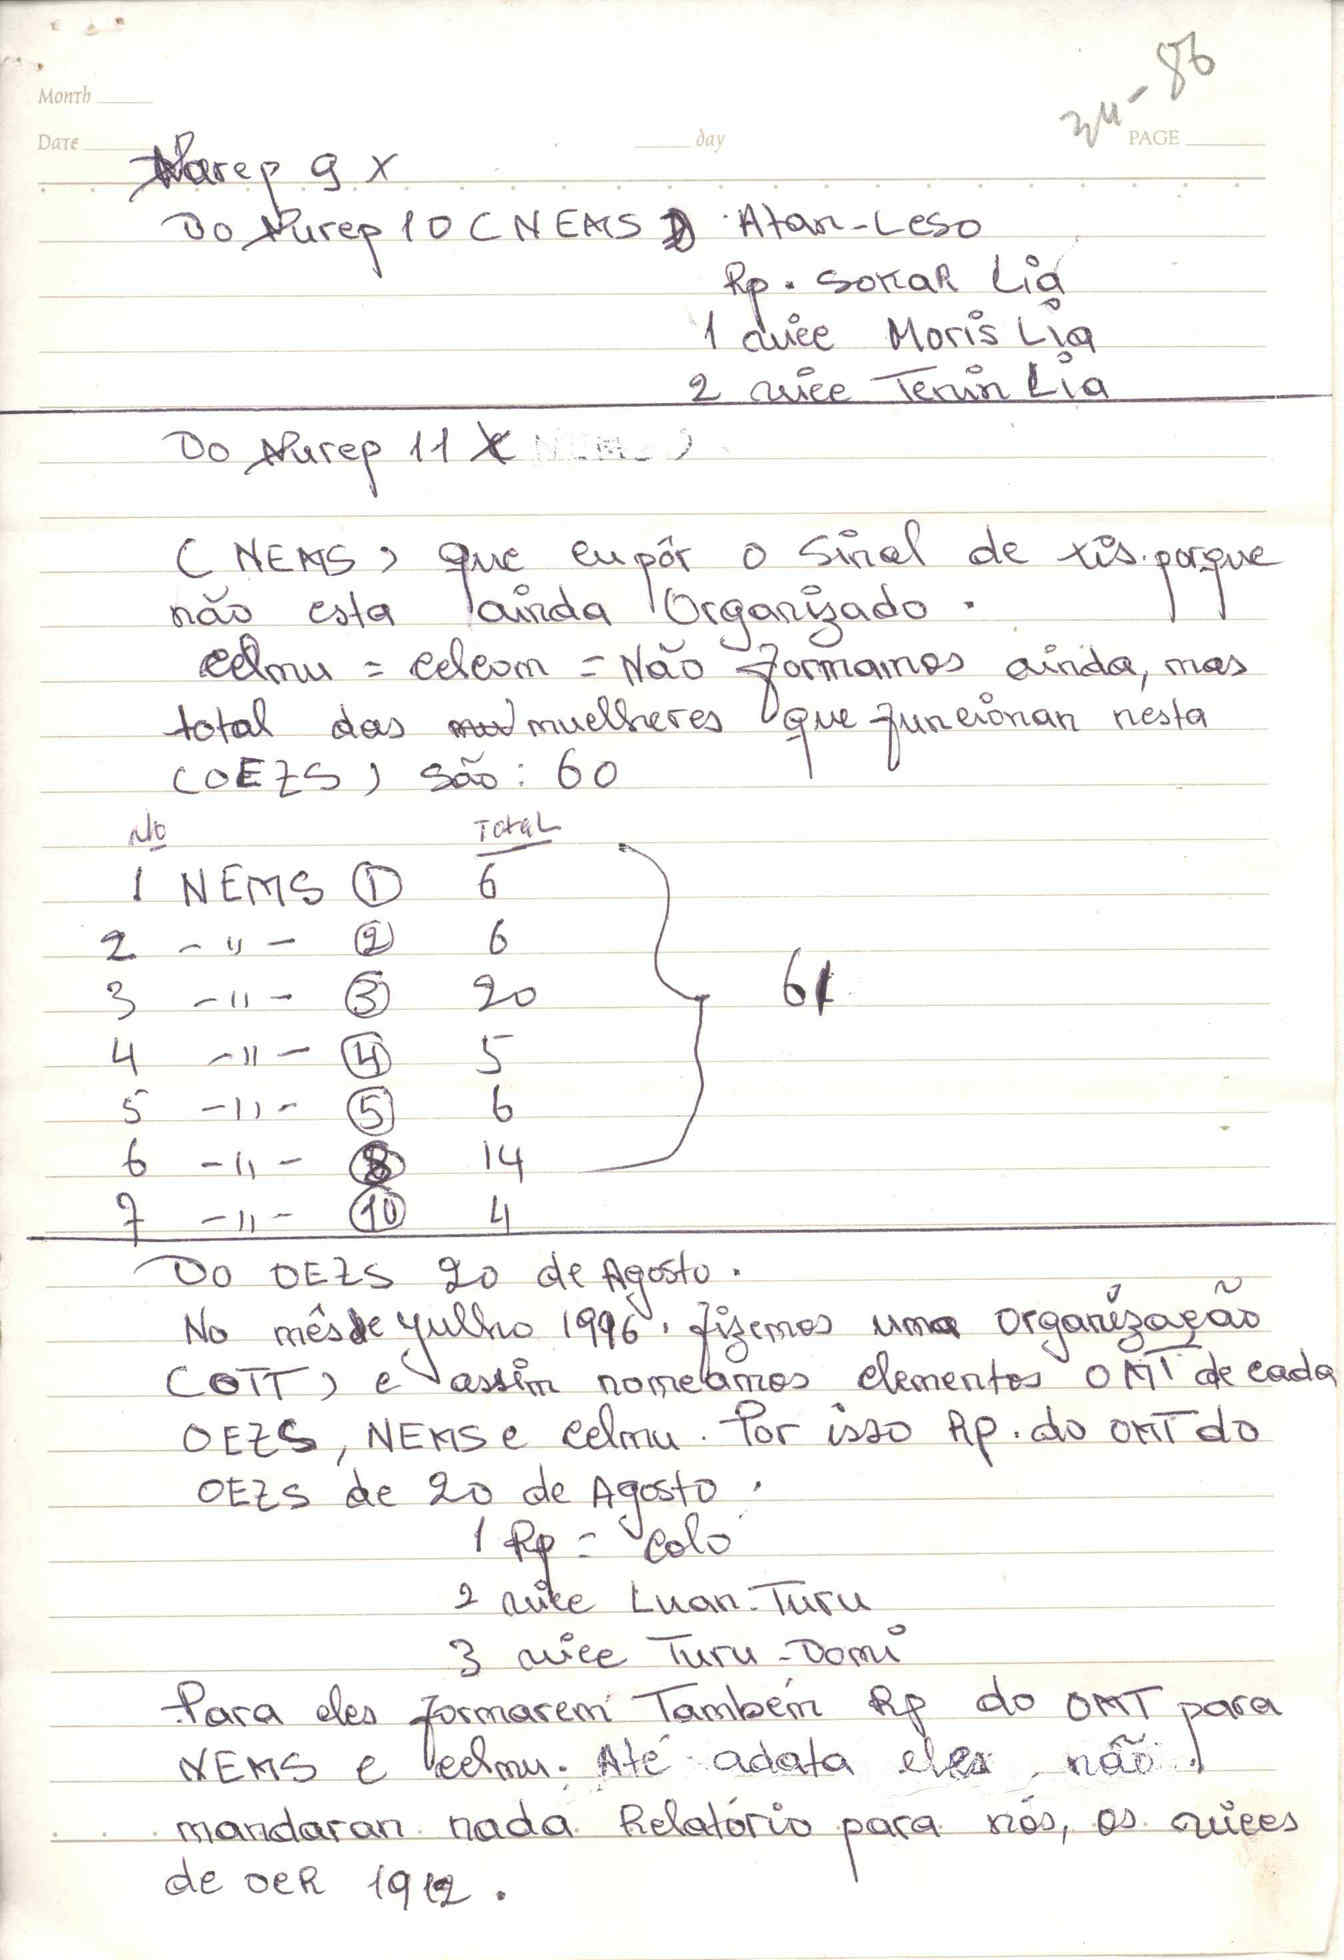 Month
34-86
Date
day
PAGE
Nurep 9 X
Do Nurep 10 (NEMS) Atan-Leso
Rp. Sokar Lia
1 vice Moris Lia
2 vice Terin Lia
Do Nurep 11 X NEMS )
( NEMS ) que eu pôr o sinal de xis. porque
não esta ainda Organizado.
Celmu = celcom = Não formamos ainda, mas
total das muelheres que funcionan nesta
(OEZS) são: 60
No Total
1 NEMS 1 6
2 -"- 2 6
3 -"- 3 20
4 -"- 4 5
5 -"- 5 6
6 -"- 8 14
7 -"- 10 4
61
Do OEZS 20 de Agosto.
No mês de yulho 1996. fizemos uma organização
(OTT) e assim nomeamos elementos OMT de cada
OEZS, NEMS e celmu. Por isso Rp. do OMT do
OEZS de 20 de Agosto.
1 Rp = Colo
2 vice Luan-Turu
3 vice Turu-Domi
Para eles formarem Também Rp do OMT para
NEMS e celmu. Até adata eles não
mandaran nada Relatório para nós, os vices
de OER 1912.